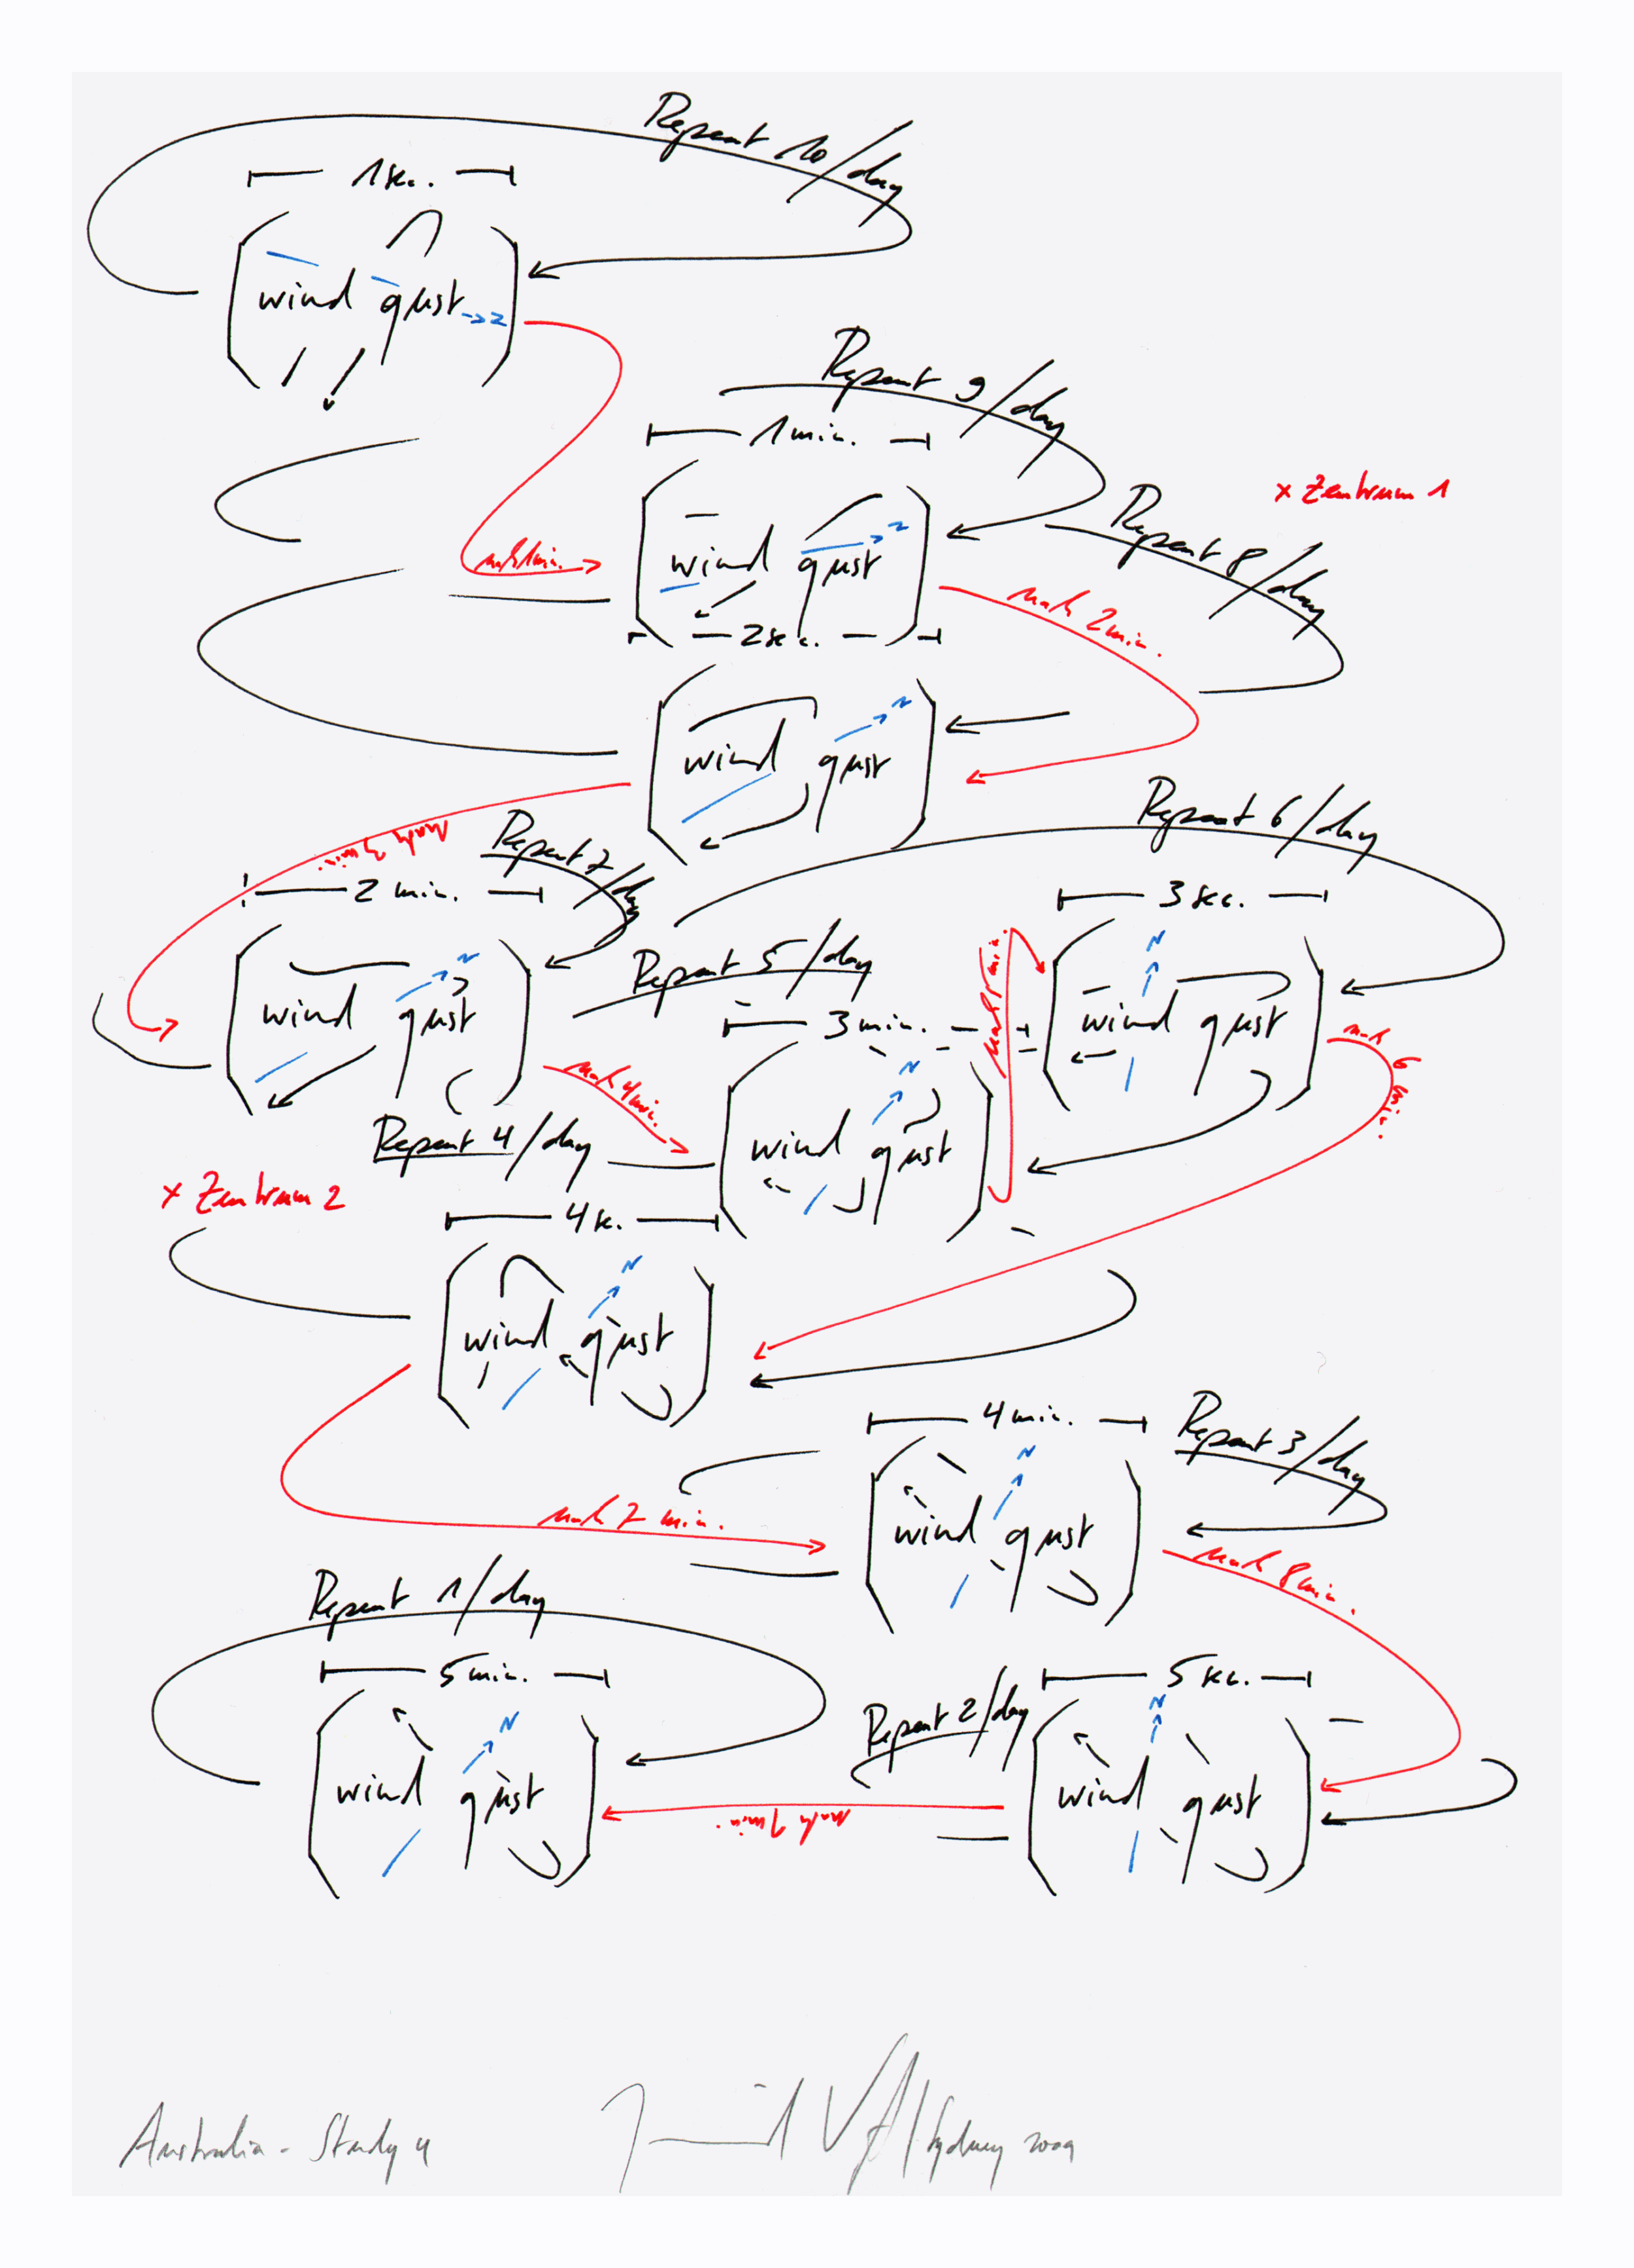 Repeat 10/day
1 sec.
wind gust → N
Repeat 9/day
1 min.
x Zentrum 1
Repeat 8/day
nach 1 min.
wind gust → N
nach 2 min.
2 sec.
wind gust → N
Repeat 6/day
nach 3 min.
Repeat 7/day
2 min.
3 sec.
wind gust → N
Repeat 5/day
nach 5 min.
wind gust → N
3 min.
nach 6 min.
nach 4 min.
wind gust → N
Repeat 4/day
x Zentrum 2
4 sec.
wind gust → N
4 min.
Repeat 3/day
nach 7 min.
wind gust → N
nach 8 min.
Repeat 1/day
5 min.
5 sec.
Repeat 2/day
wind gust → N
wind gust → N
nach 9 min.
Australia - Study 4
/Sydney 2009